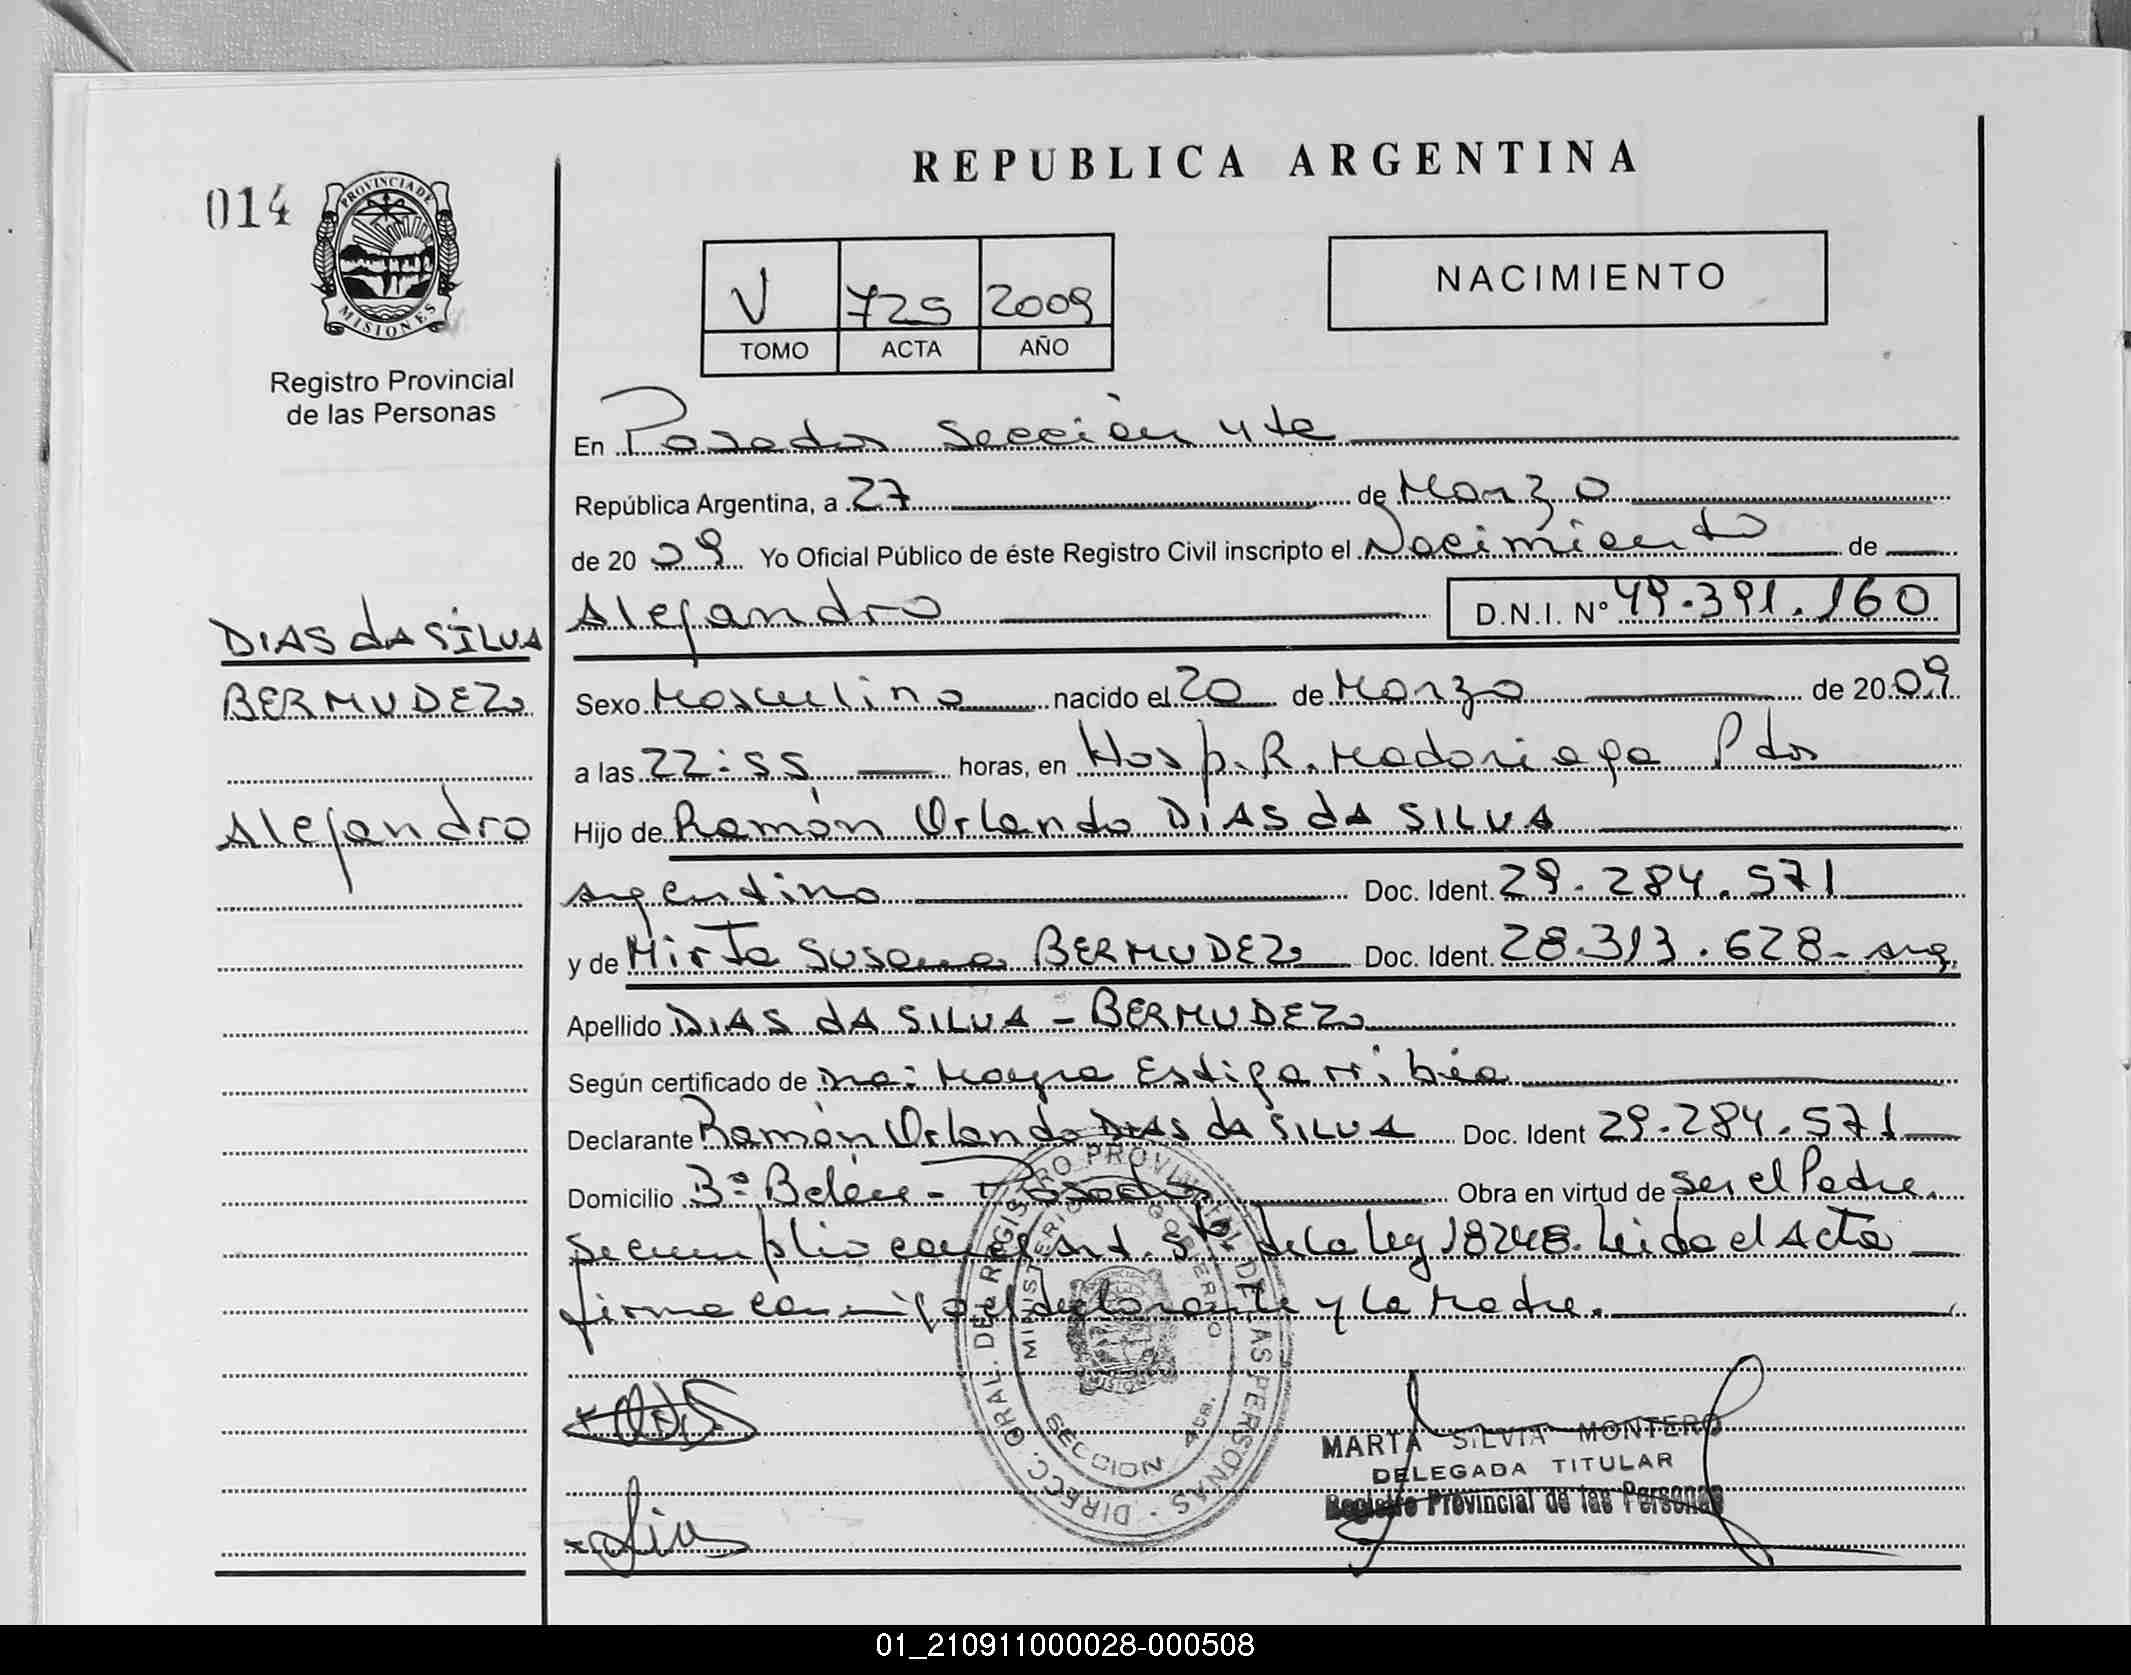 REPUBLICA ARGENTINA
014
PROVINCIA DE
MISIONES
Registro Provincial
de las Personas
NACIMIENTO
V 729 2009
TOMO ACTA AÑO
En Posadas Sección 4ta
República Argentina, a 27 de Marzo
de 2009 Yo Oficial Público de éste Registro Civil inscripto el Nacimiento de
DIAS dA SILVA
BERMUDEZ
Alejandro
Alejandro D.N.I. Nº 49.391.160
Sexo Masculino nacido el 20 de Marzo de 2009
a las 22:55 horas, en Hosp. R. Madariaga Pdas
Hijo de Ramón Orlando DIAS dA SILVA
argentino Doc. Ident. 29.284.571
y de Mirta Susana BERMUDEZ Doc. Ident. 28.313.628- arg.
Apellido DIAS dA SILVA - BERMUDEZ
Según certificado de Dra: Mayra Estigarribia
Declarante Ramón Orlando DIAS dA SILVA Doc. Ident 29.284.571
Domicilio Bº Belén - Posadas Obra en virtud de ser el Padre.
Se cumplio con el art. 5to de la ley 18248. Leida el Acta
firma conmigo el declarante y la Madre.
DIRECC. GRAL. DEL REGISTRO PROVINCIAL DE LAS PERSONAS
MINISTERIO DE GOBIERNO
SECCION 4ta.
MARTA SILVIA MONTERO
DELEGADA TITULAR
Registro Provincial de las Personas
01_210911000028-000508